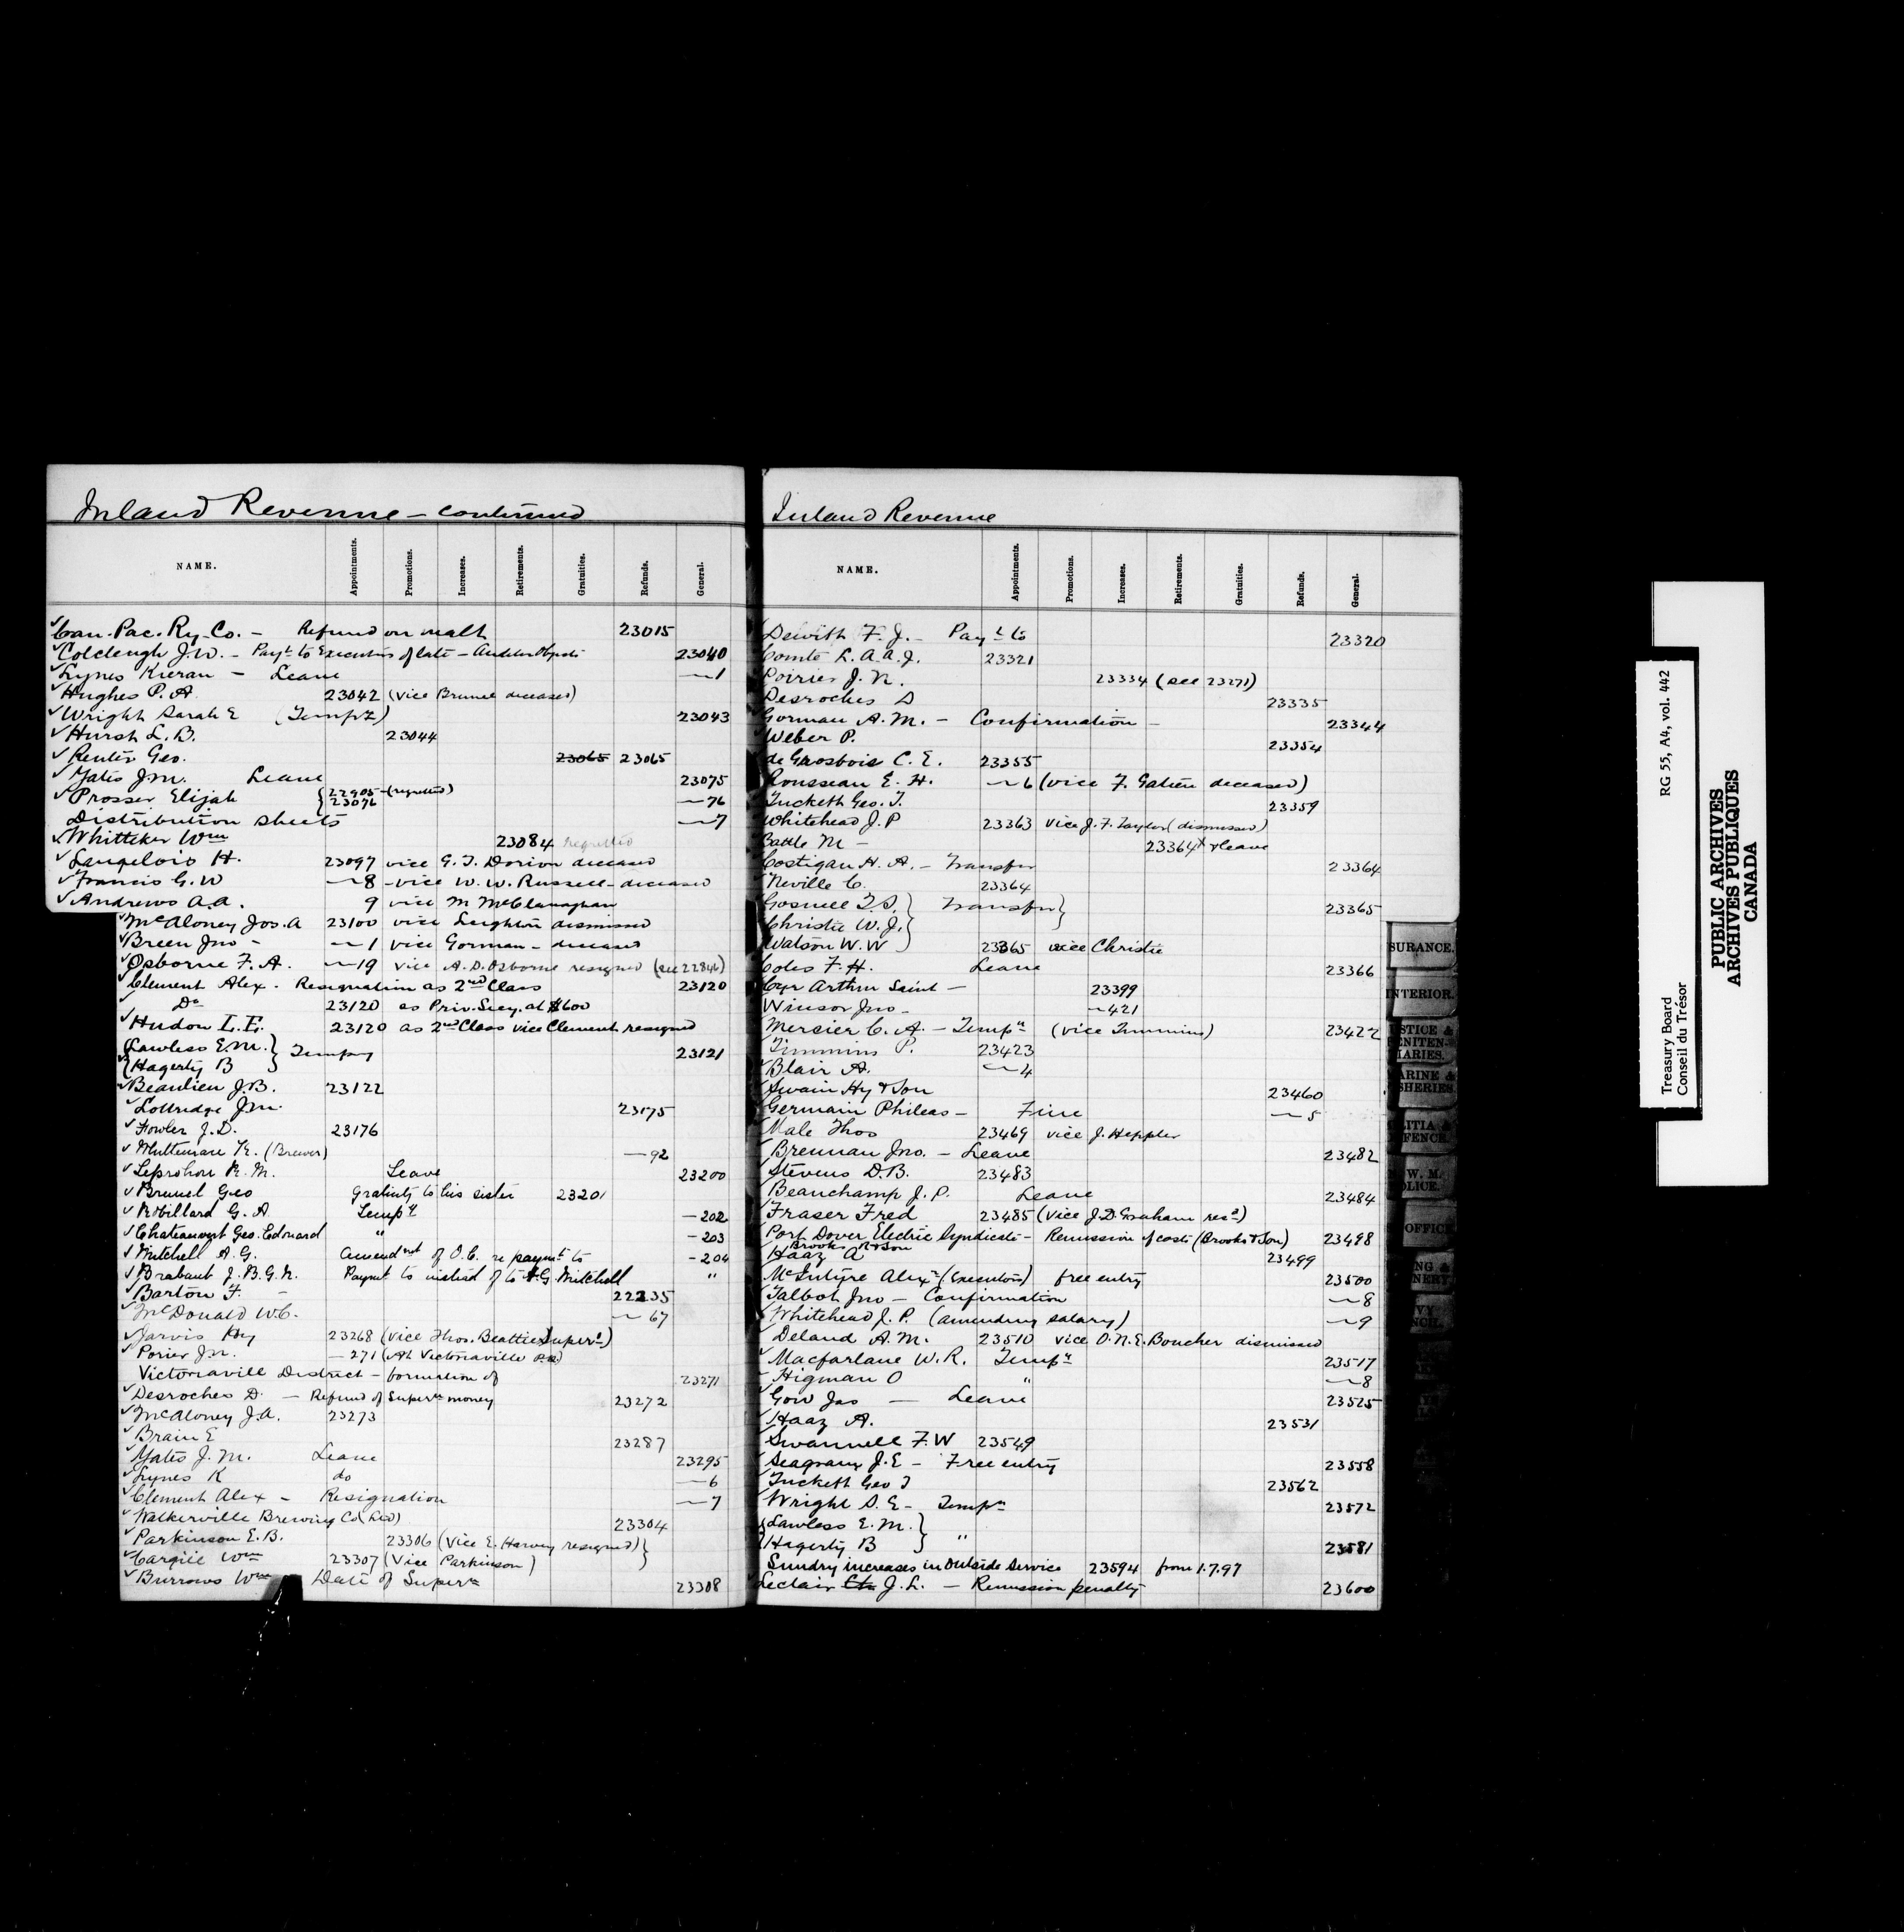 Inland Revenue - continued
NAME. Appointments. Promotions. Increases. Retirements. Gratuities. Refunds. General.
Can. Pac. Ry. Co. - Refund on malt 23015
Colcleugh J.W. - Payt to Executors of late - Auditor Objects 23040
Lynes Kieran - Leave —1
Hughes P. A. 23042 (vice Brunel deceased)
Wright Sarah E (Tempy) 23043
Hurst L. B. 23044
Renter Geo. 23065 23065
Yates J.M. Leave 23075
Prosser Elijah { 22905 - (regretted) 23076 —76
Distribution sheets —7
Whitteker Wm 23084 regretted
Langelois H. 23097 vice G. T. Dorion deceased
Francis G. W —8 - vice W. W. Russell - deceased
Andrews A.A. 9 vice M McClanaghan
McAloney Jos. A 23100 vice Leighton dismissed
Breen Jno - —1 vice Gorman - deceased
Osborne F. A. —19 vice A. D. Osborne resigned (see 22846)
Clement Alex. Resignation as 2nd Class 23120
Do 23120 as Priv. Secy. at $600
Hudon L. E. 23120 as 2nd Class vice Clement resigned
{Lawless E.M.} Tempy
{Hagerty B} 23121
Beaulieu J.B. 23122
Lottridge J.M. 23175
Fowler J. D. 23176
Whitteman K. (Brewer) —92
Leprohon R. M. Leave 23200
Brunel Geo Gratuity to his sister 23201
Robillard G. A. Tempy -202
Chateauvert Geo. Edouard " -203
Mitchell A. G. Amendnt of O.C. re paymt to -204
Brabant J. B. G. N. Paymt to instead of to A.G. Mitchell "
Barton F. - 22235
McDonald W.C. —67
Jarvis Hy 23268 (vice Thos. Beattie Superd)
Porier J.N. —271 (At Victoriaville P.Q.)
Victoriaville District - formation of 23271
Desroches D. - Refund of Superan money 23272
McAloney J.A. 23273
Brain E 23287
Yates J. M. Leave 23295
Lynes K do —6
Clement Alex - Resignation —7
Walkerville Brewing Co (Ltd) 23304
Parkinson E. B. 23306 (vice E. Harvey resigned)
Cargill Wm 23307 (vice Parkinson)
Burrows Wm Date of Superan 23308
Inland Revenue
NAME. Appointments. Promotions. Increases. Retirements. Gratuities. Refunds. General.
Dewith F. J. - Payt to 23320
Comte L. A. A. J. 23321
Poirier J. N. 23334 (see 23271)
Desroches D 23335
Gorman A. M. - Confirmation - 23344
Weber P. 23354
de Grosbois C. E. 23355
Rousseau E. H. —6 (vice F. Gatien deceased)
Tuckett Geo. T. 23359
Whitehead J. P 23363 vice J. F. Taylor (dismissed)
Battle M - 23364 & leave
Costigan H. A. - Transfer 23364
Neville C. 23364
Gosnell T. S. } Transfer } 23365
Christie W. J. }
Watson W. W } 23365 vice Christie
Coles F. H. Leave 23366
Cyr Arthur Saint - 23399
Winsor Jno - —421
Mercier C. A. - Tempy (vice Timmins) 23422
Timmins P. 23423
Blair A. —4
Swain Hy & Son 23460
Germain Phileas - Fine —5
Male Thos 23469 vice J. Heppler
Brennan Jno. - Leave 23482
Stevens D.B. 23483
Beauchamp J. P. Leave 23484
Fraser Fred 23485 (vice J. D. Graham resd)
Port Dover Electric Syndicate - Remission of costs (Brooks & Son) 23498
Brooks R & Son
Haaz A 23499
McIntyre Alexr (Executors) free entry 23500
Talbot Jno - Confirmation —8
Whitehead J. P. (amending salary) —9
Deland A. M. 23510 vice O. N. E. Boucher dismissed
Macfarlane W. R. Tempy 23517
Higman O " —8
Gow Jas — Leave 23525
Haaz A. 23531
Swannell F. W 23549
Seagram J. E - Free entry 23558
Tuckett Geo T 23562
Wright S. E - Tempy 23572
{Lawless E. M.}
{Hagerty B } " 23581
Sundry increases in Outside Service 23594 from 1.7.97
Leclair J. L. - Remission penalty 23600
SURANCE.
INTERIOR.
STICE &
ENITEN-
IARIES.
ARINE &
SHERIES
LITIA &
FENCE.
W. M.
OLICE.
OFFICE
NG &
NERY
VY
NCIL.
Treasury Board RG 55, A4, vol. 442
Conseil du Trésor
PUBLIC ARCHIVES
ARCHIVES PUBLIQUES
CANADA